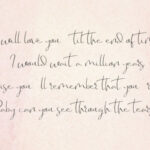 will love you 'til the end of tim
I would wait a million years
se you'll remember that you
Baby can you see through the tears